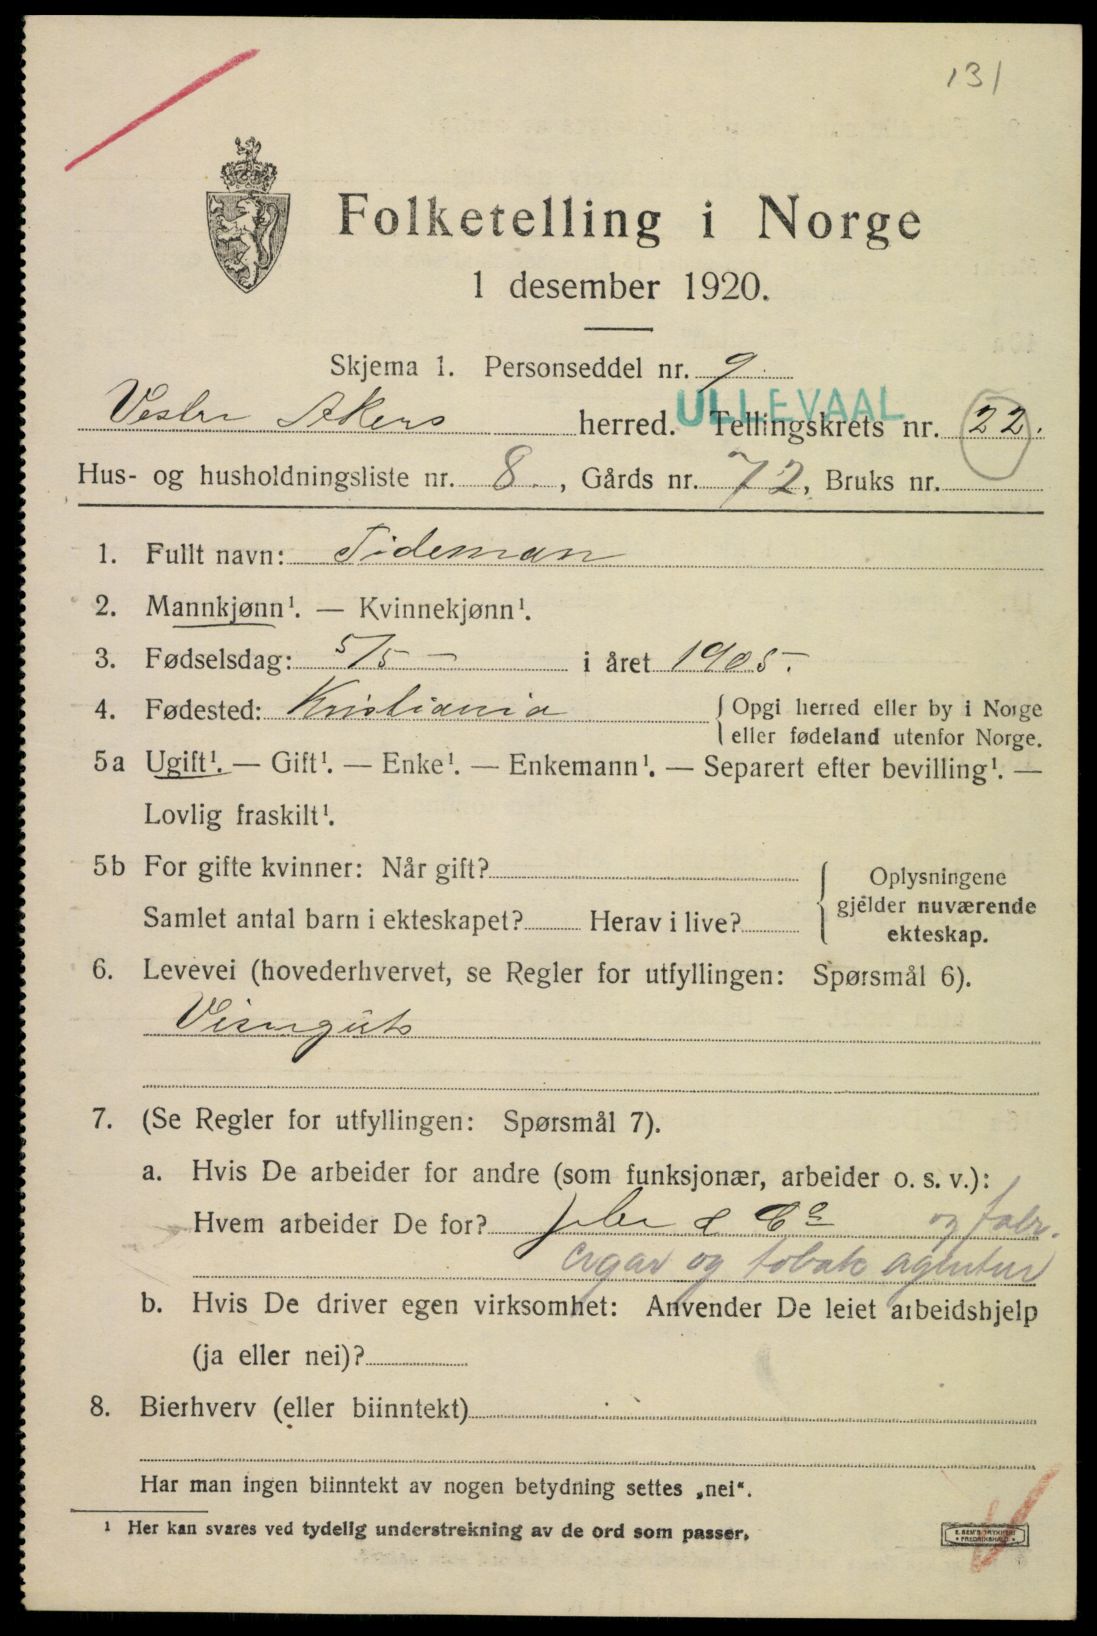 131
Folketelling i Norge
1 desember 1920.
Skjema 1. Personseddel nr. 9.
ULLEVAAL
Vestre Akers herred. Tellingskrets nr. 22.
Hus- og husholdningsliste nr. 8., Gårds nr. 72, Bruks nr.
1. Fullt navn: Tideman
2. Mannkjønn¹. — Kvinnekjønn¹.
3. Fødselsdag: 5/5 — i året 1905.
4. Fødested: Kristiania { Opgi herred eller by i Norge
eller fødeland utenfor Norge.
5a Ugift¹. — Gift¹. — Enke¹. — Enkemann¹. — Separert efter bevilling¹. —
Lovlig fraskilt¹.
5b For gifte kvinner: Når gift?
Samlet antal barn i ekteskapet? Herav i live?
{ Oplysningene
gjelder nuværende
ekteskap.
6. Levevei (hovederhvervet, se Regler for utfyllingen: Spørsmål 6).
Visergut
7. (Se Regler for utfyllingen: Spørsmål 7).
a. Hvis De arbeider for andre (som funksjonær, arbeider o. s. v.):
Hvem arbeider De for? & Co og fabr.
cigar og tobak agentur
b. Hvis De driver egen virksomhet: Anvender De leiet arbeidshjelp
(ja eller nei)?
8. Bierhverv (eller biinntekt)
Har man ingen biinntekt av nogen betydning settes „nei“.
¹ Her kan svares ved tydelig understrekning av de ord som passer.
E. SEM'S TRYKKERI
FREDRIKSHALD